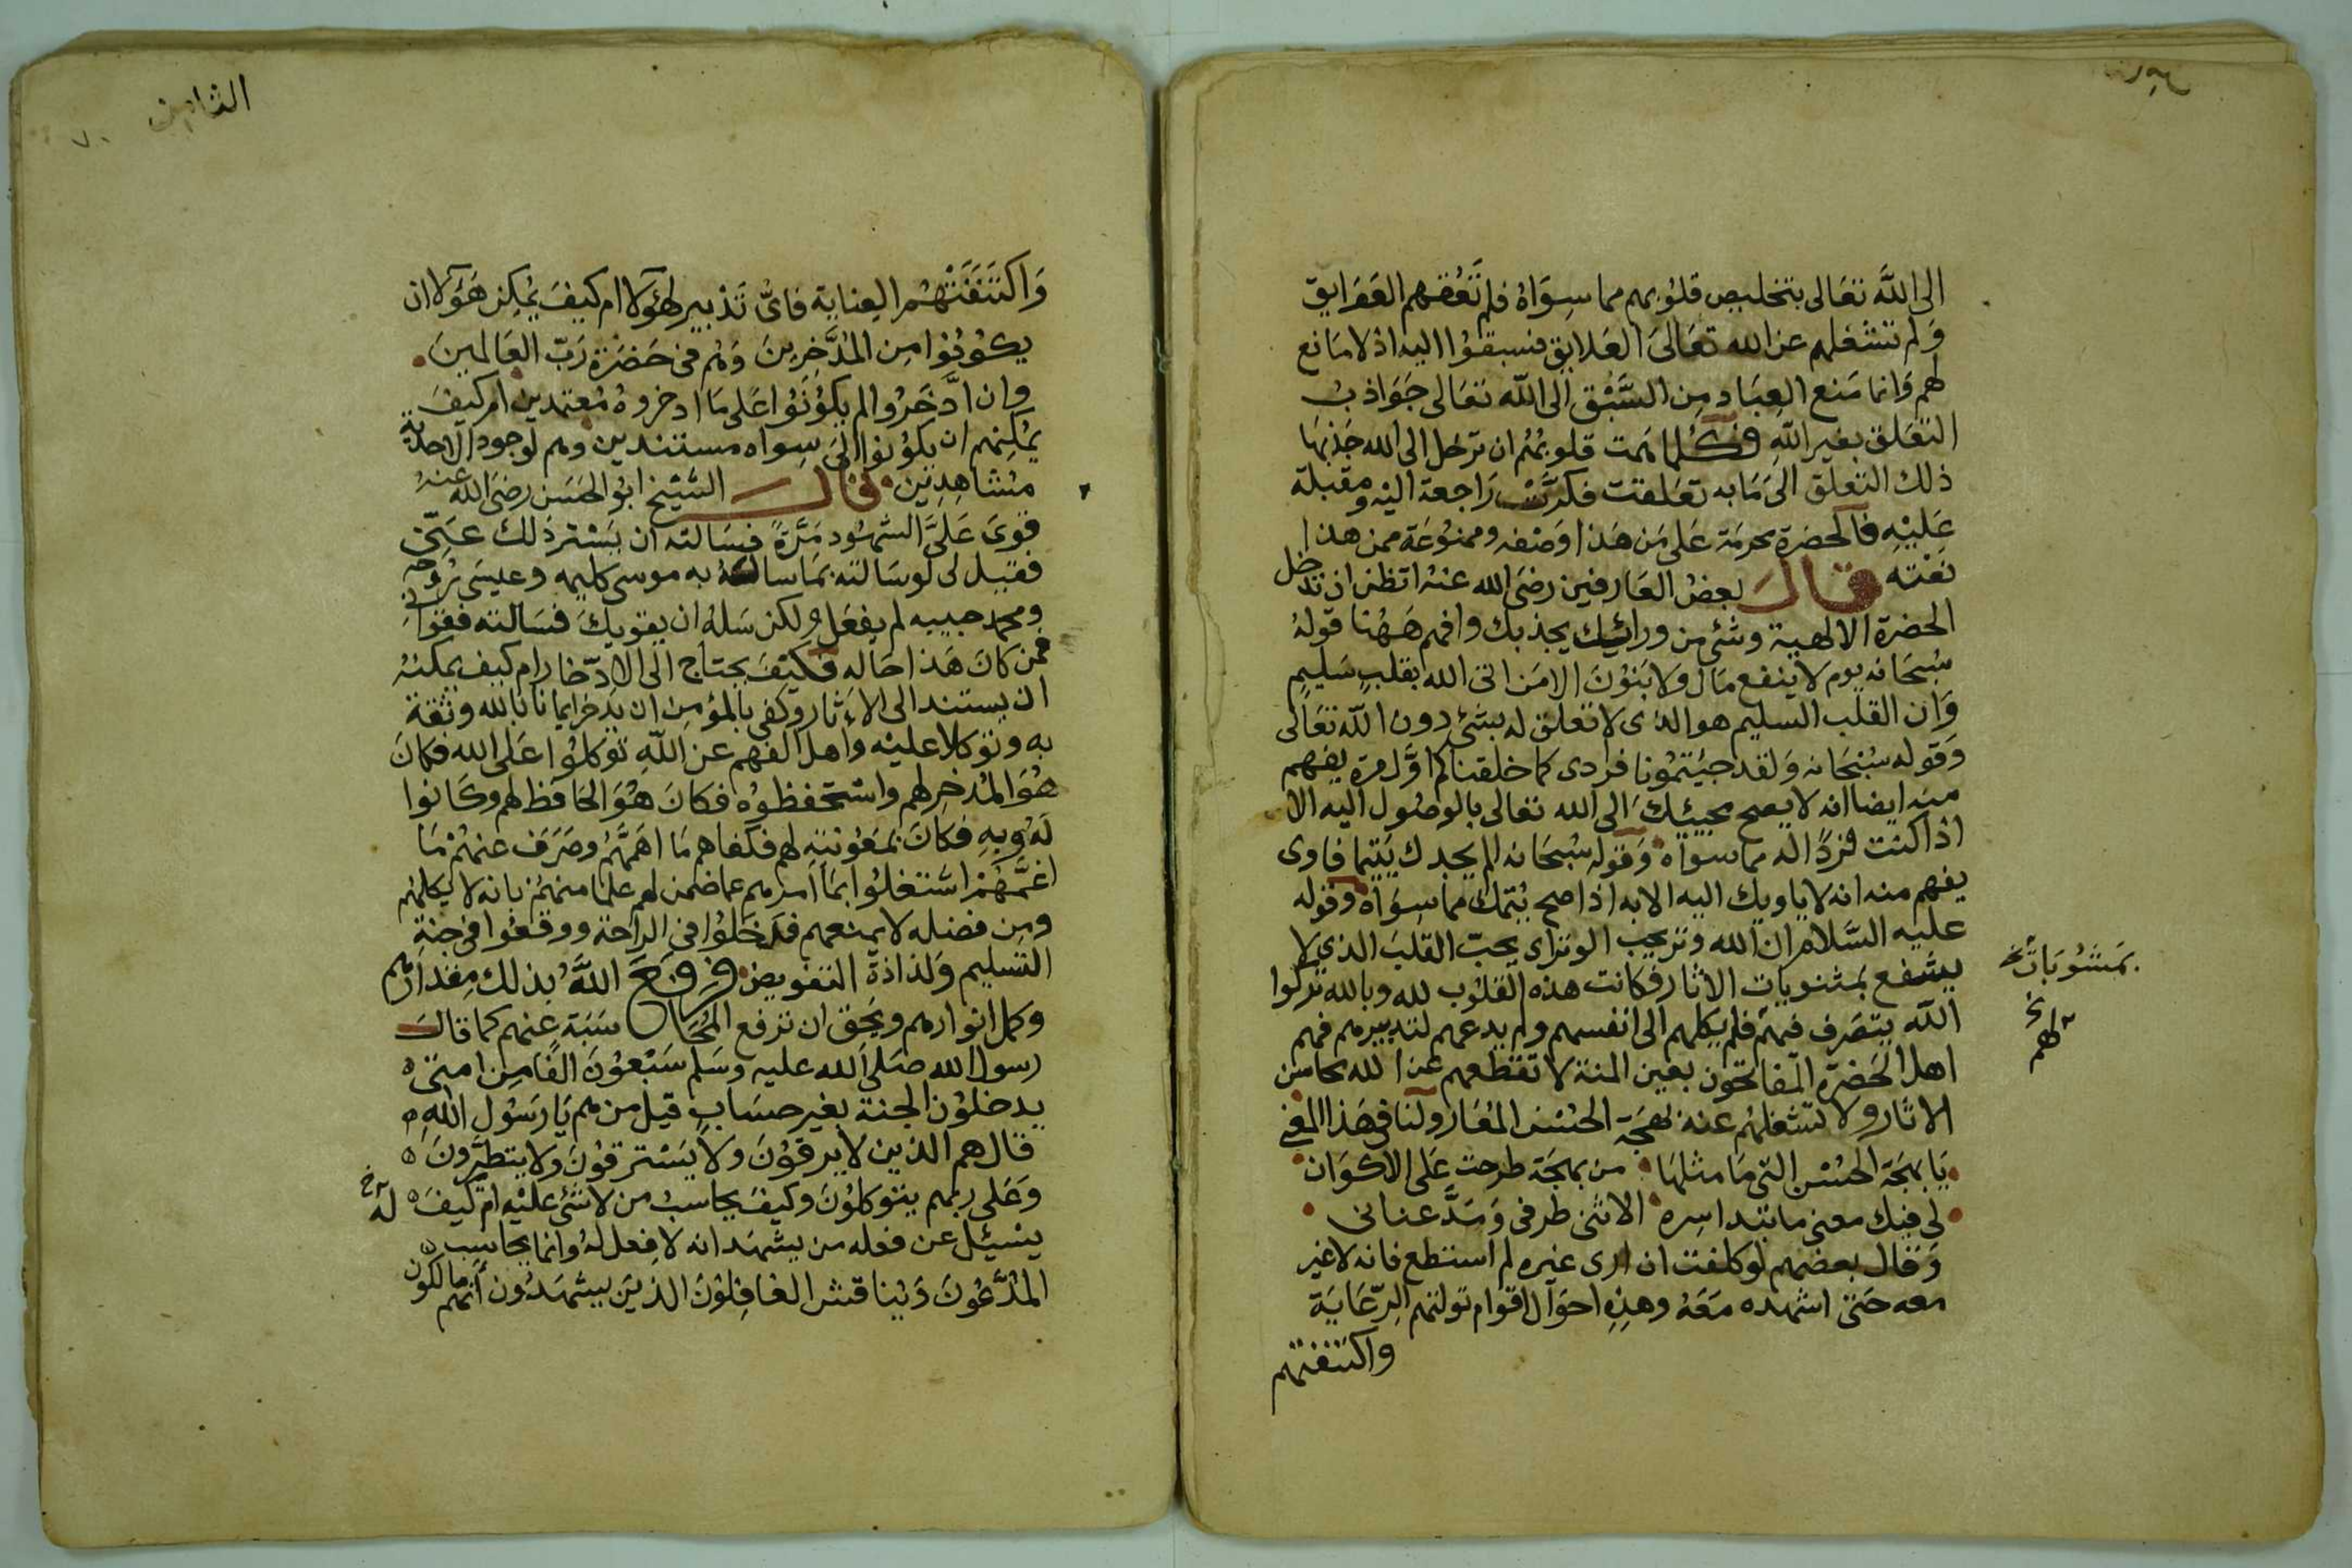 الى الله تعالى بتخليص قلوبهم مما سواه فلم تعقهم العوايق
ولم تشغلهم عن الله تعالى العلايق فسبقوا اليه اذ لا مانع
لهم وانما منع العباد من السبق الى الله تعالى جواذب
التعلق بغير الله فكلما همت قلوبهم ان ترحل الى الله جذبها
ذلك التعلق الى ما به تعلقت فكرت راجعة اليه ومقبلة
عليه فالحضرة محرمة على من هذا وصفه وممنوعة ممن هذا
نعته قال بعض العارفين رضى الله عنه اتظن ان تدخل
الحضرة الالهية وشئ من ورائك يجذبك وافهم ههنا قوله
سبحانه يوم لا ينفع مال ولا بنون الا من اتى الله بقلب سليم
وان القلب السليم هو الذى لا تعلق له بشئ دون الله تعالى
وقوله سبحانه ولقد جيتمونا فردى كما خلقناكم اول مرة يفهم
منه ايضا انه لا يصح مجيئك الى الله تعالى بالوصول اليه الا
اذا كنت فردا له مما سواه وقوله سبحانه الم يجدك يتيما فاوى
يفهم منه انه لا ياويك اليه الا به اذا صح يتمك مما سواه وقوله
عليه السلام ان الله وتر يحب الوتر اى يحب القلب الذى لا
يشفع بمثنويات الاثار فكانت هذه القلوب لله وبالله تركوا
بمشوبات
الله يتصرف فيهم فلم يكلهم الى انفسهم ولم يدعهم لتدبيرهم فهم
لهم
اهل الحضرة المفاتحون بعين المنة لا تقطعهم عن الله محاسن
الاثار ولا تشغلهم عنه بهجة الحسن المعار ولنا فى هذا المعنى
يا بهجة الحسن التى ما مثلها من بهجة طرحت على الاكوان
لى فيك معنى ما تبدا سره الا ثنى طرفى ومد عنانى
وقال بعضهم لو كلفت ان ارى غيره لم استطع فانه لا غير
معه حتى اشهده معه وهذه احوال اقوام تولتهم الرعاية
واكتنفتهم
الثامن
٧٠
واكتنفتهم العناية فاى تدبير لهؤلا ام كيف يمكن هؤلا ان
يكونوا من المدخرين وهم فى حضرة رب العالمين
وان ادخروا لم يكونوا على ما ادخروه معتمدين ام كيف
يمكنهم ان يكونوا الى سواه مستندين وهم لوجود الاحدية
مشاهدين قال الشيخ ابو الحسن رضى الله عنه
قوى على الشهود مرة فسالته ان يستر ذلك عنى
فقيل لى لو سالته بما ساله به موسى كليمه وعيسى روحه
ومحمد حبيبه لم يفعل ولكن سله ان يقويك فسالته فقوانى
فمن كان هذا حاله فكيف يحتاج الى الادخار ام كيف يمكنه
ان يستند الى الاثار وكفى بالمؤمن ان يدخر ايمانا بالله وثقة
به وتوكلا عليه واهل الفهم عن الله توكلوا على الله فكان
هو المدخر لهم واستحفظوه فكان هو الحافظ لهم وكانوا
له وبه فكان بمعونته لهم فكفاهم ما اهمهم وصرف عنهم ما
اغمهم اشتغلوا بما امرهم عما ضمن لهم علما منهم بانه لا يكلهم
ومن فضله لا يمنعهم فدخلوا فى الراحة ووقعوا فى جنة
التسليم ولذاذة التفويض فرفع الله بذلك مقدارهم
وكمل انوارهم ويحق ان ترفع المحاسبة عنهم كما قال
رسول الله صلى الله عليه وسلم سبعون الفا من امتى
يدخلون الجنة بغير حساب قيل من هم يا رسول الله
قال هم الذين لا يرقون ولا يسترقون ولا يتطيرون
وعلى ربهم يتوكلون وكيف يحاسب من لا شئ عليه ام كيف
له
يسئل عن فعله من يشهد انه لا فعل له وانما يحاسب
المدعون ويناقش الغافلون الذين يشهدون انهم مالكون